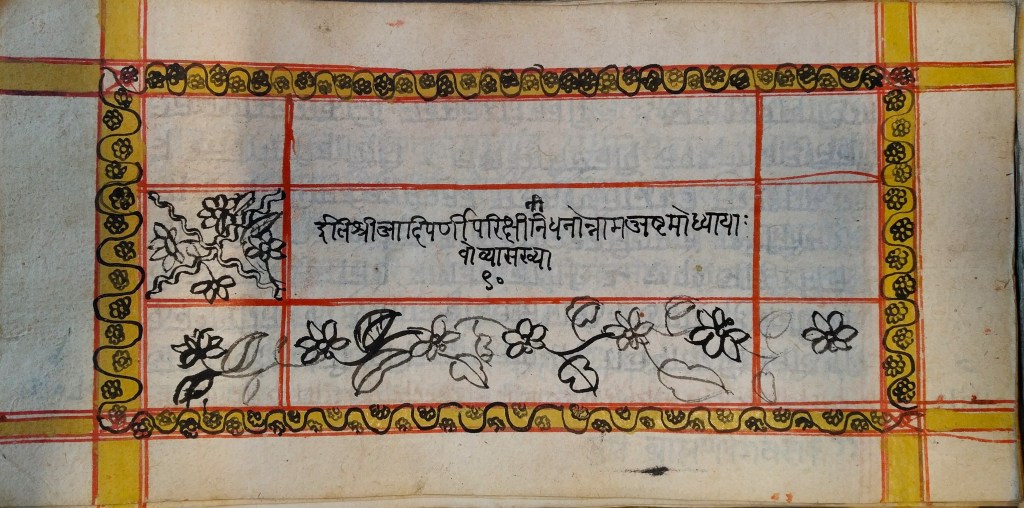 नी
ईतिश्रीआदिपर्णीपरिक्षीनिधनोन्नामअष्टमोध्यायाः
वोव्यासख्या
९०